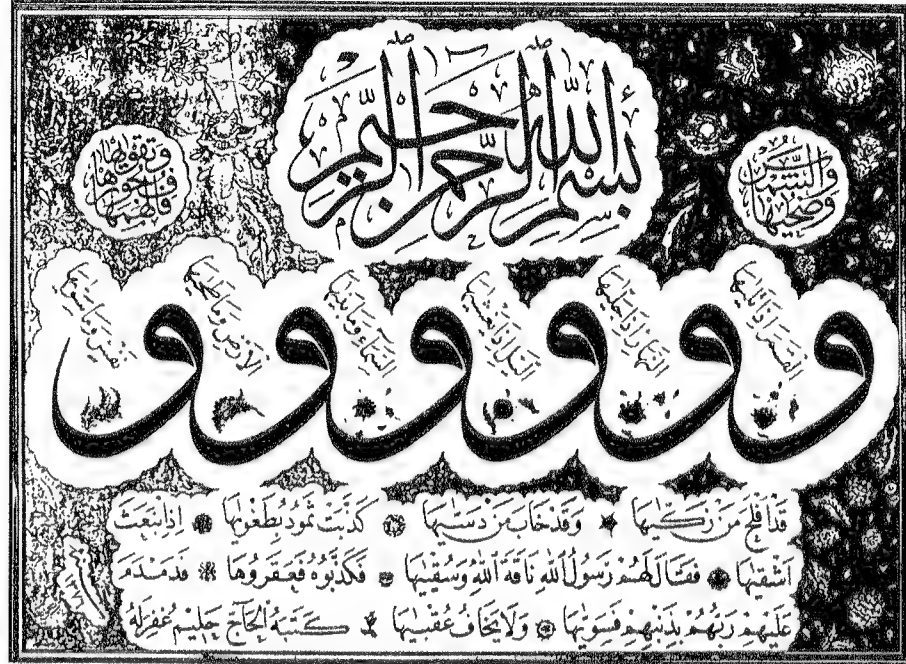 بِسْمِ اللهِ الرَّحْمٰنِ الرَّحِيمِ
وَالشَّمْسِ وَضُحٰيهَا
وَالْقَمَرِ اِذَا تَلٰيهَا
وَالنَّهَارِ اِذَا جَلّٰيهَا
وَالَّيْلِ اِذَا يَغْشٰيهَا
وَالسَّمَٓاءِ وَمَا بَنٰيهَا
وَالْاَرْضِ وَمَا طَحٰيهَا
وَنَفْسٍ وَمَا سَوّٰيهَا
فَاَلْهَمَهَا فُجُورَهَا وَتَقْوٰيهَا
قَدْ اَفْلَحَ مَنْ زَكّٰيهَا وَقَدْ خَابَ مَنْ دَسّٰيهَا كَذَّبَتْ ثَمُودُ بِطَغْوٰيهَا اِذِ انْبَعَثَ
اَشْقٰيهَا فَقَالَ لَهُمْ رَسُولُ اللهِ نَاقَةَ اللهِ وَسُقْيٰيهَا فَكَذَّبُوهُ فَعَقَرُوهَا فَدَمْدَمَ
عَلَيْهِمْ رَبُّهُمْ بِذَنْبِهِمْ فَسَوّٰيهَا وَلَا يَخَافُ عُقْبٰيهَا كَتَبَهُ الْحَاجّ حَلِيم غُفِرَ لَهُ